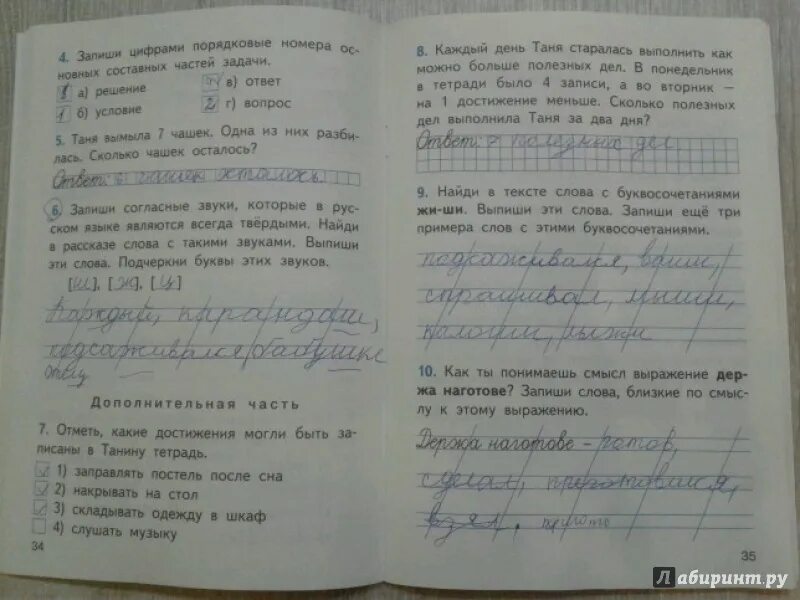 4. Запиши цифрами порядковые номера ос-
новных составных частей задачи.
а) решение
в) ответ
1 б) условие
2 г) вопрос
5. Таня вымыла 7 чашек. Одна из них разби-
лась. Сколько чашек осталось?
Ответ: 6 чашек осталось
6. Запиши согласные звуки, которые в рус-
ском языке являются всегда твёрдыми. Найди
в рассказе слова с такими звуками. Выпиши
эти слова. Подчеркни буквы этих звуков.
[Ш], [Ж], [Ц]
Каждый, карандаш,
подсаживался бабушке
Дополнительная часть
7. Отметь, какие достижения могли быть за-
писаны в Танину тетрадь.
1) заправлять постель после сна
2) накрывать на стол
3) складывать одежду в шкаф
4) слушать музыку
34
8. Каждый день Таня старалась выполнить как
можно больше полезных дел. В понедельник
в тетради было 4 записи, а во вторник —
на 1 достижение меньше. Сколько полезных
дел выполнила Таня за два дня?
Ответ: 7 полезных дел
9. Найди в тексте слова с буквосочетаниями
жи-ши. Выпиши эти слова. Запиши ещё три
примера слов с этими буквосочетаниями.
подсаживался,
спрашивал, мыши,
лыжи
10. Как ты понимаешь смысл выражение дер-
жа наготове? Запиши слова, близкие по смыс-
лу к этому выражению.
Держа наготове - готов,
сделал, приготовился,
взял,
35
Лабиринт.ру